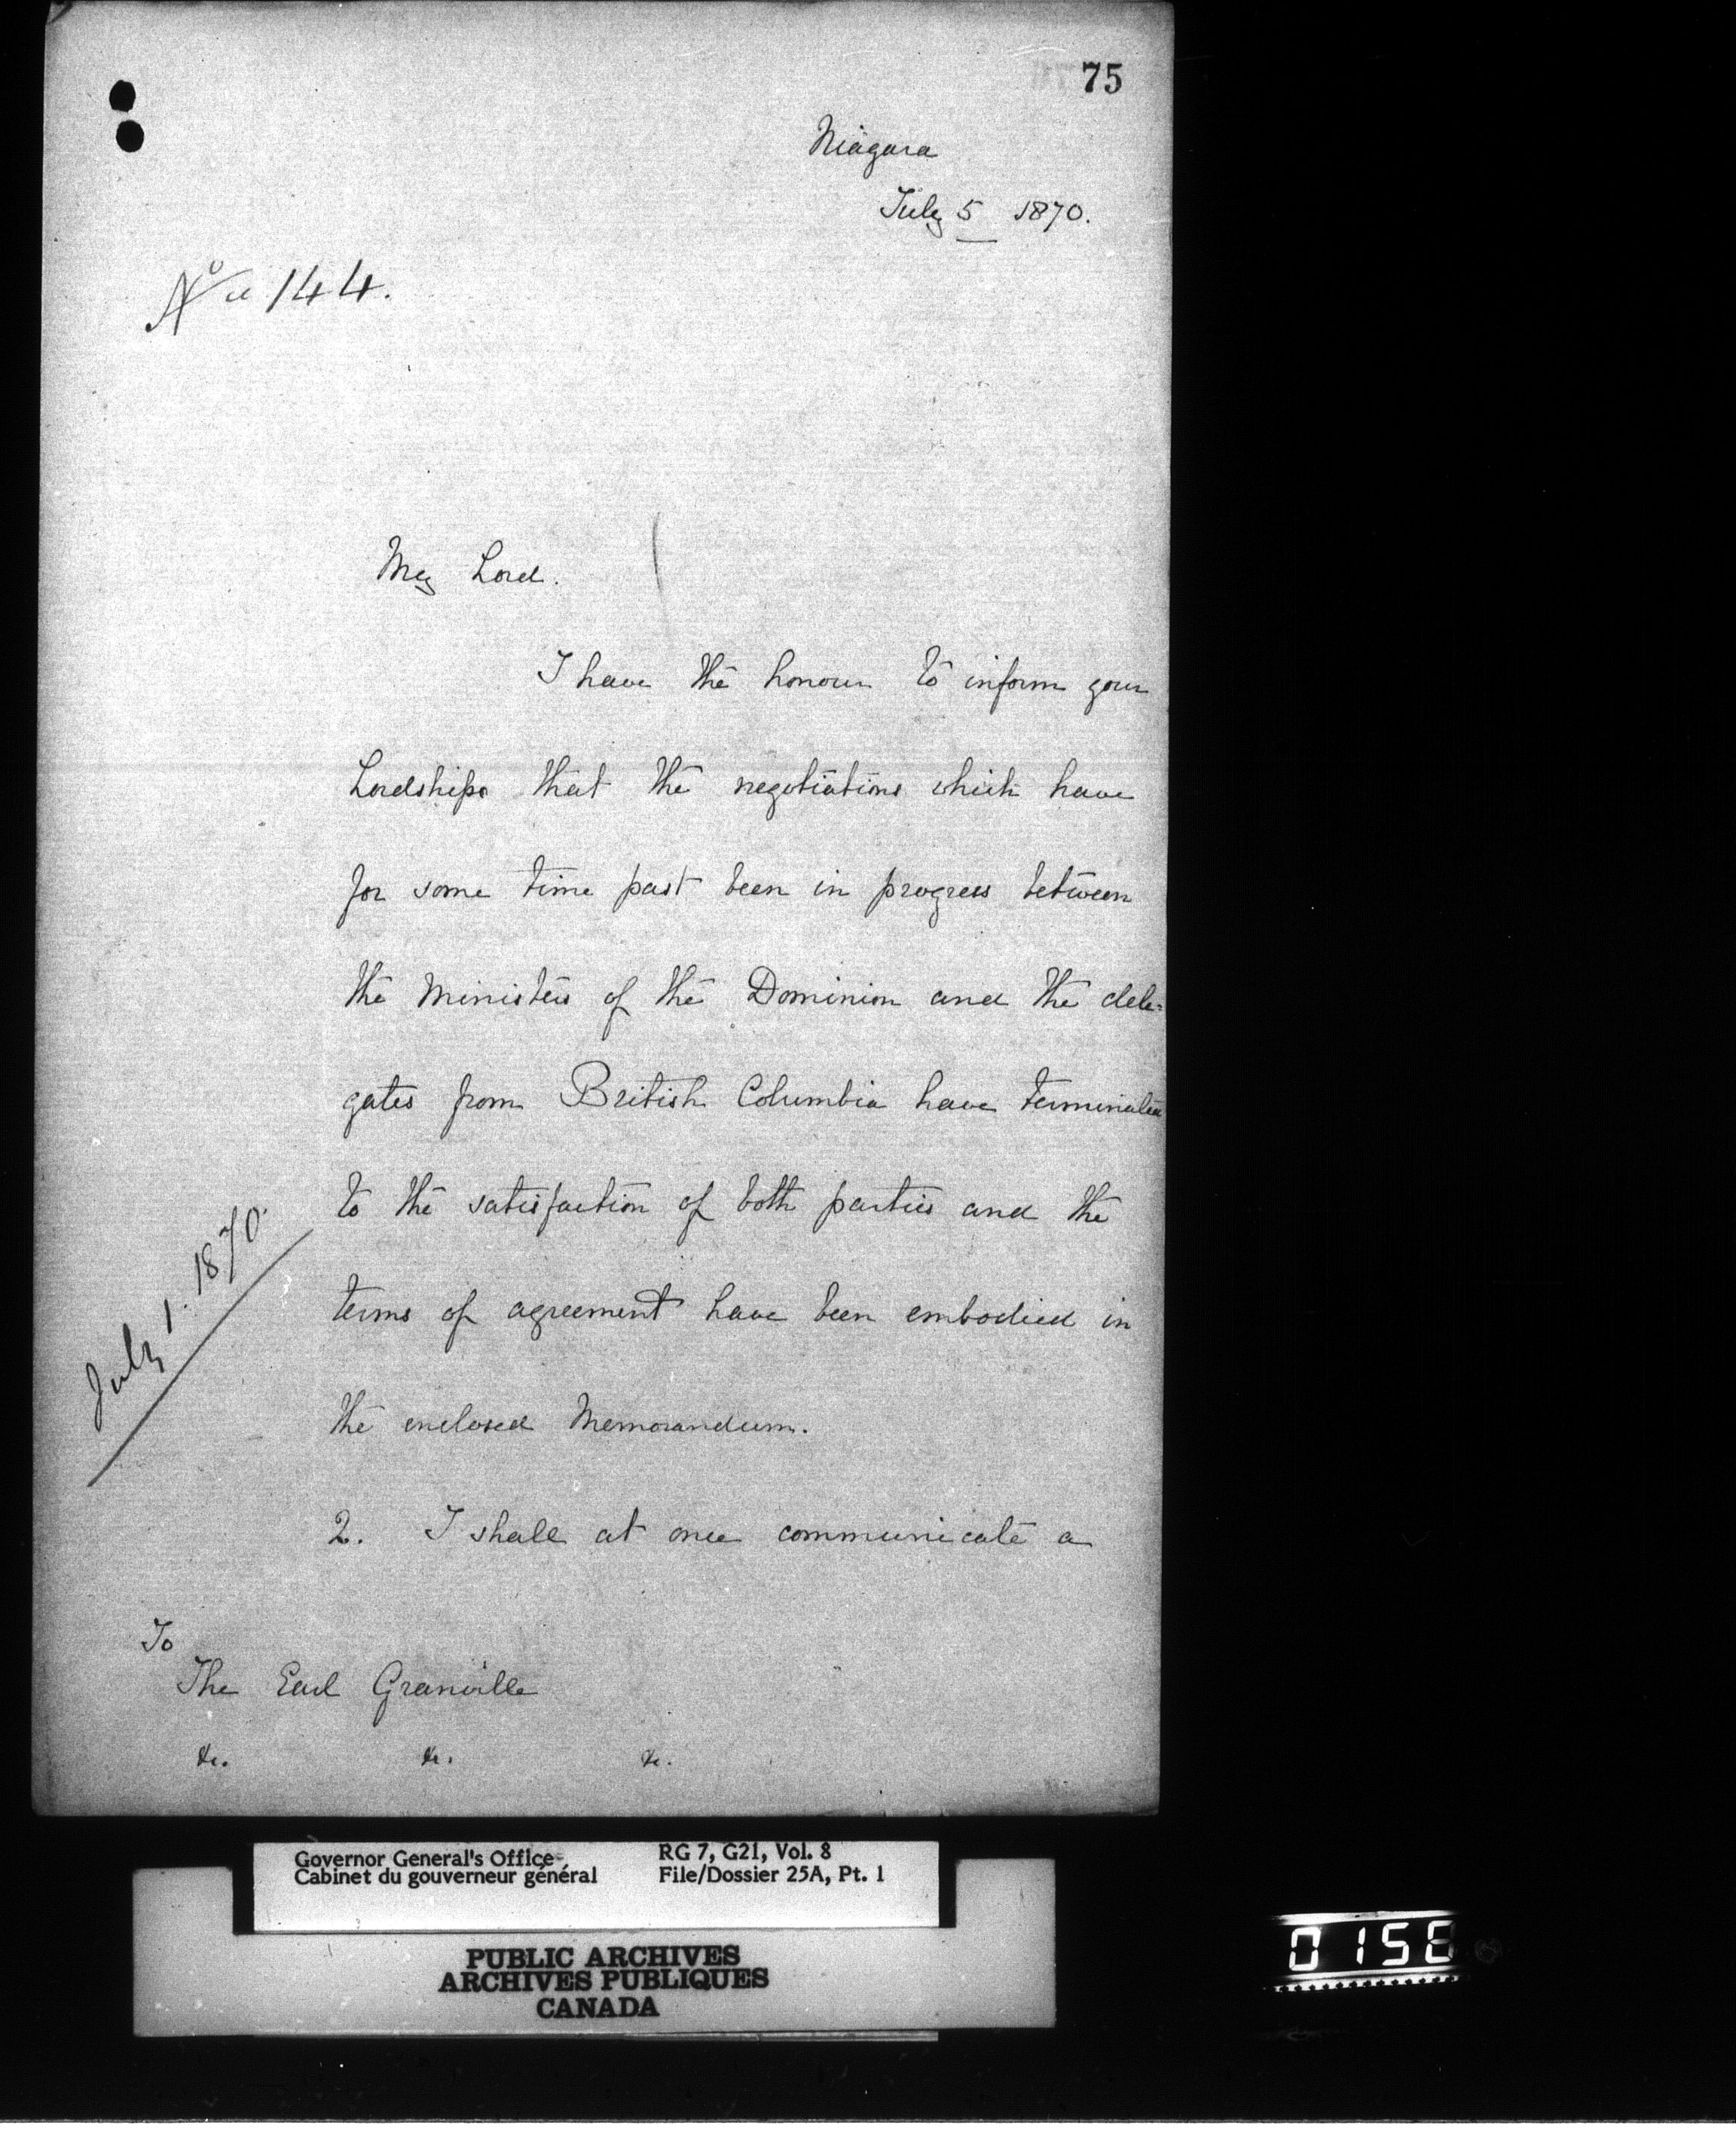 75
Niagara
July 5 1870.
No 144.
My Lord.
I have the honour to inform your
Lordships that the negotiations which have
for some time past been in progress between
the Ministers of the Dominion and the dele=
gates from British Columbia have terminated
to the satisfaction of both parties and the
terms of agreement have been embodied in
July 1. 1870.
the enclosed Memorandum.
2. I shall at once communicate a
To
The Earl Granville
&c. &c. &c.
Governor General's Office
Cabinet du gouverneur général
RG 7, G21, Vol. 8
File/Dossier 25A, Pt. 1
PUBLIC ARCHIVES
ARCHIVES PUBLIQUES
CANADA